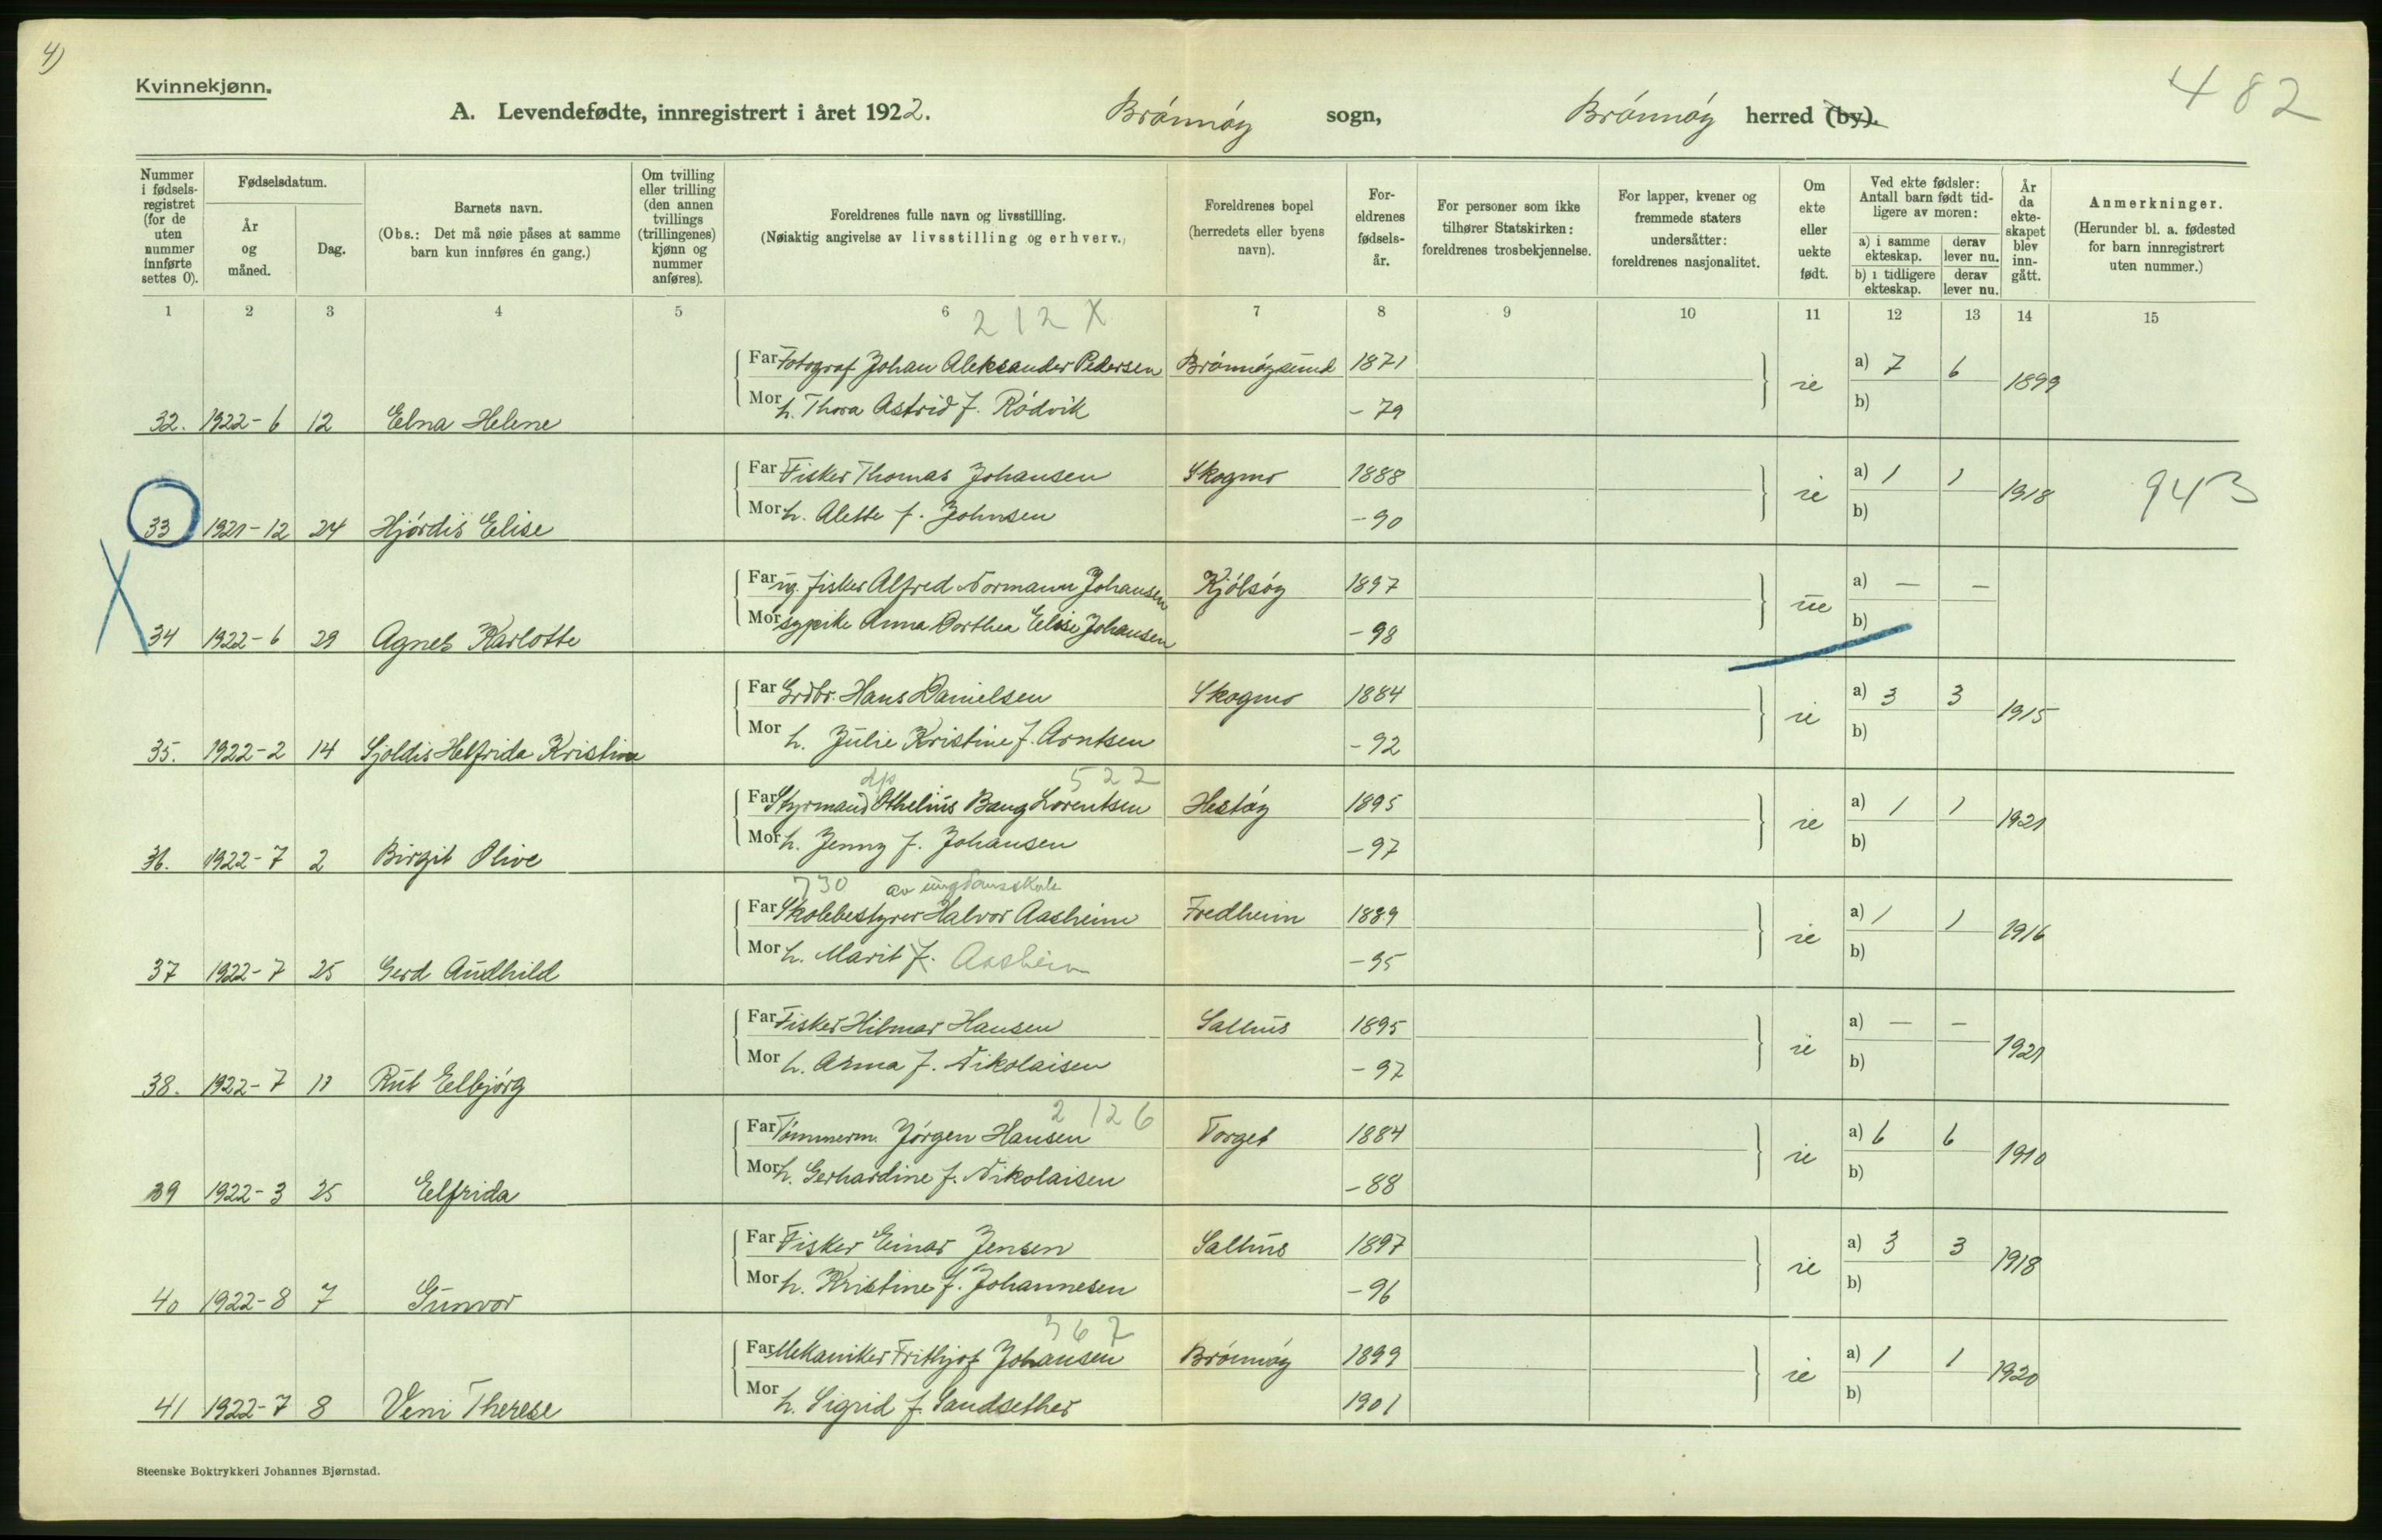 4)
Kvinnekjønn.
482
A. Levendefødte, innregistrert i året 1922. Brønnøy sogn, Brønnøy herred (by).
Nummer i fødselsregistret (for de uten nummer innførte settes 0).
Fødselsdatum.
År og måned.
Dag.
Barnets navn.
(Obs.: Det må nøie påses at samme barn kun innføres én gang.)
Om tvilling eller trilling (den annen tvillings (trillingenes) kjønn og nummer anføres).
Foreldrenes fulle navn og livsstilling.
(Nøiaktig angivelse av livsstilling og erhverv.)
Foreldrenes bopel (herredets eller byens navn).
Foreldrenes fødselsår.
For personer som ikke tilhører Statskirken: foreldrenes trosbekjennelse.
For lapper, kvener og fremmede staters undersåtter: foreldrenes nasjonalitet.
Om ekte eller uekte født.
Ved ekte fødsler: Antall barn født tidligere av moren:
a) i samme ekteskap. derav lever nu.
b) i tidligere ekteskap. derav lever nu.
År da ekteskapet blev inngått.
Anmerkninger.
(Herunder bl. a. fødested for barn innregistrert uten nummer.)
1 2 3 4 5 6 7 8 9 10 11 12 13 14 15
212 X
Far Fotograf Johan Aleksander Pedersen Brønnøysund 1871 ie a) 7 6 1899
Mor h. Thora Astrid f. Rødvik - 79 b)
32. 1922-6 12 Elna Helene
Far Fisker Thomas Johansen Skogmo 1888 ie a) 1 1 1918 943
Mor h. Alette f. Johnsen - 90 b)
33 1921-12 24 Hjørdis Elise
Far ug. fisker Alfred Normann Johansen Kjølsøy 1897 ue a) — —
Mor sypike Anna Dorthea Elise Johansen - 98 b)
X 34 1922-6 29 Agnes Karlotte
Far Grdbr. Hans Danielsen Skogmo 1884 ie a) 3 3 1915
Mor h. Julie Kristine f. Arntsen - 92 b)
35. 1922-2 14 Sjoldis Helfrida Kristine
522
Far Styrmand Othelius Bang Lorentsen Hestøy 1895 ie a) 1 1 1921
Mor h. Jenny f. Johansen - 97 b)
36. 1922-7 2 Birgit Olive
730 av ungdomsskole
Far Skolebestyrer Halvor Aasheim Fredheim 1889 ie a) 1 1 1916
Mor h. Marit f. Aasheim - 95 b)
37 1922-7 25 Gerd Audhild
Far Fisker Hilmar Hansen Salhus 1895 ie a) — — 1921
Mor h. Anna f. Nikolaisen - 97 b)
38. 1922-7 11 Rut Elbjørg
2126
Far Tømmerm. Jørgen Hansen Torget 1884 ie a) 6 6 1910
Mor h. Gerhardine f. Nikolaisen - 88 b)
39 1922-3 25 Elfrida
Far Fisker Einar Jensen Salhus 1897 ie a) 3 3 1918
Mor h. Kristine f. Johannesen - 96 b)
40 1922-8 7 Gunvor
367
Far Mekaniker Frithjof Johansen Brønnøy 1899 ie a) 1 1 1920
Mor h. Sigrid f. Sandsether 1901 b)
41 1922-7 8 Veni Therese
Steenske Boktrykkeri Johannes Bjørnstad.